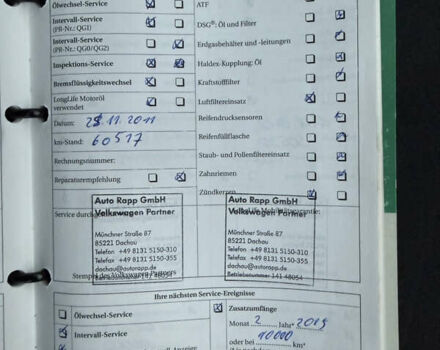 Ölwechsel-Service
Intervall-Service
(PR-Nr.: QG1)
Intervall-Service
(PR-Nr.: QG0/QG2)
Inspektions-Service
Bremsflüssigkeitswechsel
LongLife Motoröl
verwendet
Datum: 11.2011
km-Stand: 60517
Rechnungsnummer:
Reparaturempfehlung
ATF
DSG®: Öl und Filter
Erdgasbehälter und -leitungen
Haldex-Kupplung: Öl
Kraftstofffilter
Luftfiltereinsatz
Reifendrucksensoren
Reifenfüllflasche
Staub- und Pollenfiltereinsatz
Zahnriemen
Zündkerzen
Service durch
Auto Rapp GmbH
Volkswagen Partner
Münchner Straße 87
85221 Dachau
Telefon +49 8131 5150-310
Telefax +49 8131 5150-355
dachau@autorapp.de
Betriebsnummer 141 48054
Stempel des Volkswagen Partners
Mobilitätsgarantie:
Auto Rapp GmbH
Volkswagen Partner
Münchner Straße 87
85221 Dachau
Telefon +49 8131 5150-310
Telefax +49 8131 5150-355
dachau@autorapp.de
Betriebsnummer 141 48054
Ihre nächsten Service-Ereignisse
Ölwechsel-Service
Intervall-Service
Zusatzumfänge
Monat 2 Jahr
oder bei 10000 km